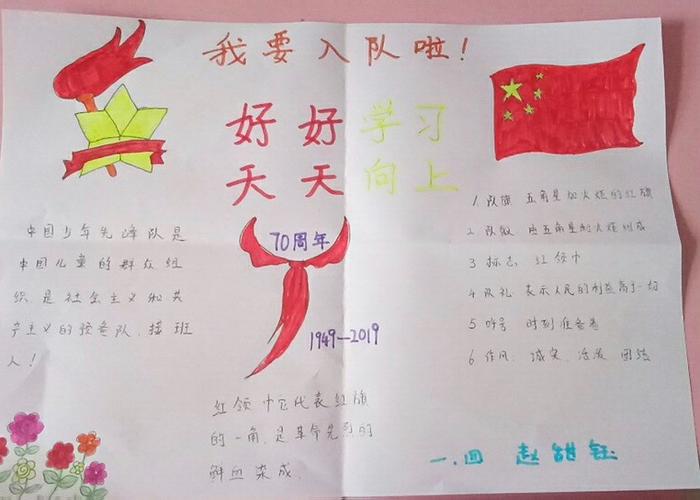 我要入队啦！
好好学习
天天向上
70周年
1949—2019
中国少年先锋队是
中国儿童的群众组
织是社会主义和共
产主义的预备队，接班
人！
红领巾它代表红旗
的一角，是革命先烈的
鲜血染成.
1. 队旗 五角星加火炬的红旗
2 队徽 由五角星加火炬组成
3 标志 红领巾
4 队礼 表示人民的利益高于一切
5 呼号 时刻准备着
6 作风 诚实、活泼 团结
一.四 赵甜钰